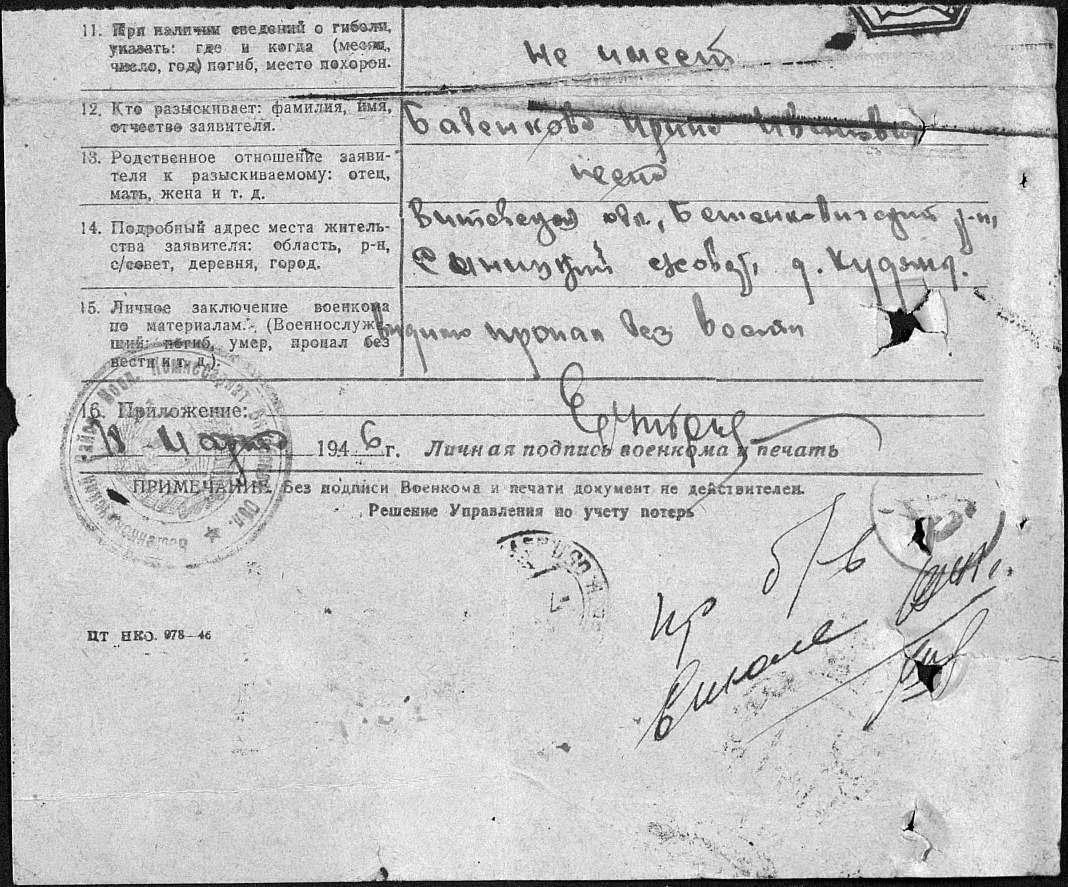 11. При наличии сведений о гибели, указать: где и когда (месяц, число, год) погиб, место похорон.
не имеет
12. Кто разыскивает: фамилия, имя, отчество заявителя.
Бавенкова Ирина Ивановна
13. Родственное отношение заяви-
теля к разыскиваемому: отец,
мать, жена и т. д.
14. Подробный адрес места житель-
ства заявителя: область, р-н,
с/совет, деревня, город.
Витебская обл., Бешенковичский р-н,
д.
15. Личное заключение военкома
по материалам. (Военнослужа-
щий: погиб, умер, пропал без
вести и т. д.).
пропал без вести
16. Приложение:
18 марта 1946 г. Личная подпись военкома и печать
ПРИМЕЧАНИЕ. Без подписи Военкома и печати документ не действителен.
Решение Управления по учету потерь
пр б/в
июле
ЦТ НКО. 978—46